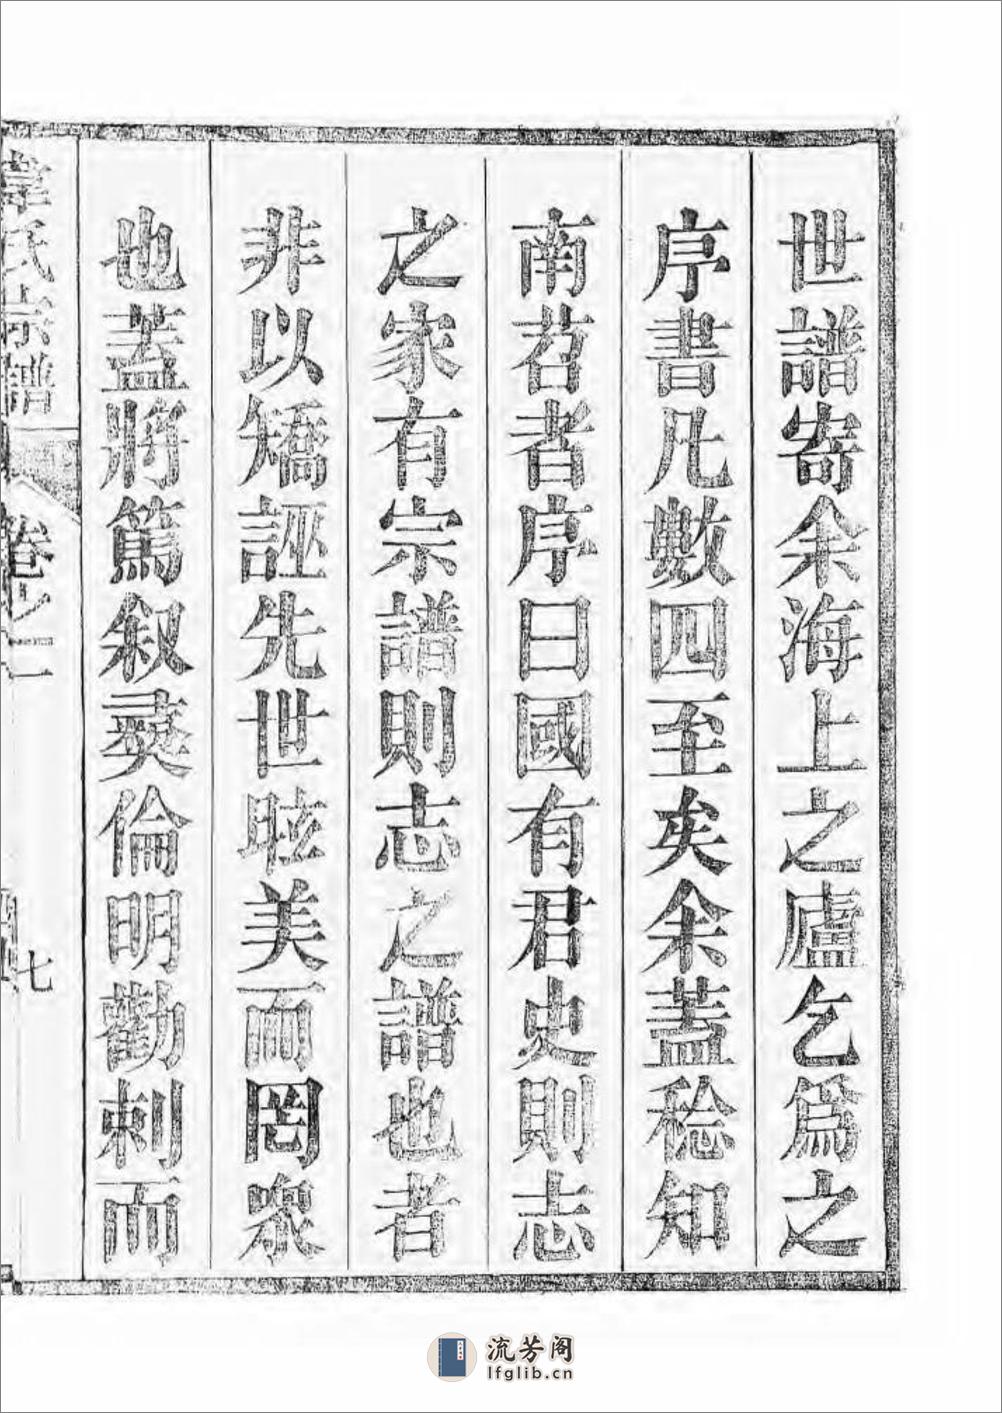 世譜寄余海上之廬乞爲之
序書凡數四至矣余蓋稔知
南苕者序曰國有君史則志
之家有宗譜則志之譜也者
非以矯誣先世眩美而罔衆
也蓋將篤叙彛倫明勸刺而
韋氏宗譜
卷之二
七
流芳阁
lfglib.cn